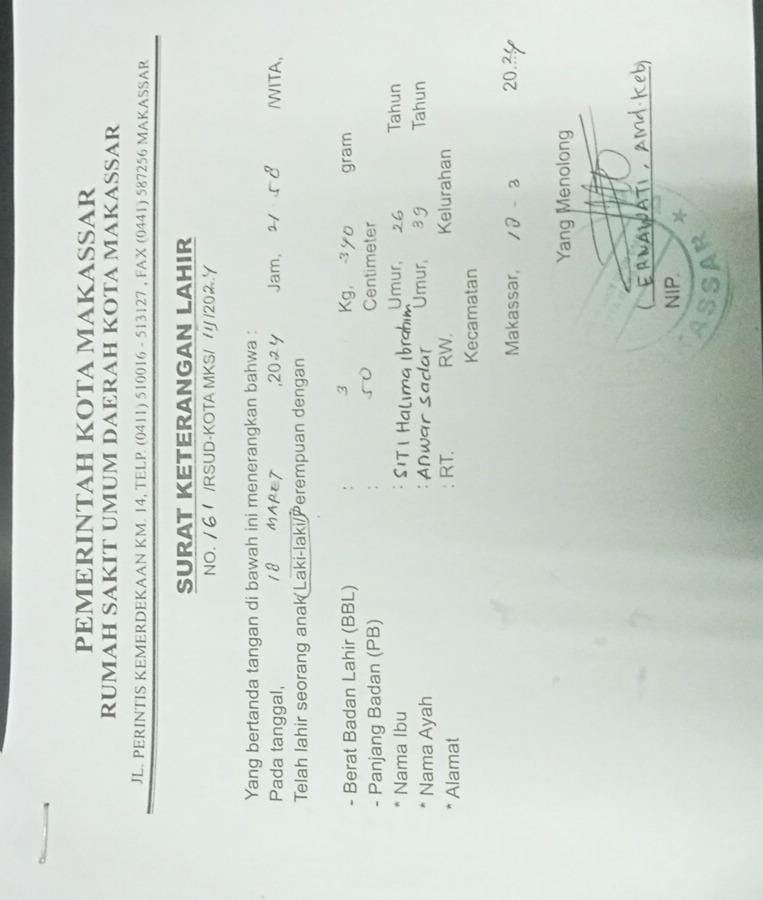 PEMERINTAH KOTA MAKASSAR
RUMAH SAKIT UMUM DAERAH KOTA MAKASSAR
JL. PERINTIS KEMERDEKAAN KM. 14, TELP. (0411) 510016 - 513127 , FAX (0441) 587256 MAKASSAR
SURAT KETERANGAN LAHIR
NO. 161 /RSUD-KOTA MKS/ III/202.4
Yang bertanda tangan di bawah ini menerangkan bahwa :
Pada tanggal, 18 MARET ,2024 Jam, 21.58 /WITA,
Telah lahir seorang anak(Laki-laki/Perempuan dengan
- Berat Badan Lahir (BBL) : 3 Kg, 340 gram
- Panjang Badan (PB) : 50 Centimeter
* Nama Ibu : SITI Halima Ibrahim Umur, 26 Tahun
* Nama Ayah : Anwar Sadat Umur, 39 Tahun
* Alamat : RT. RW. Kelurahan
Kecamatan
Makassar, 18 - 3 20.24
Yang Menolong
( ERNAWATI , Amd.keb)
NIP.
ASSAR